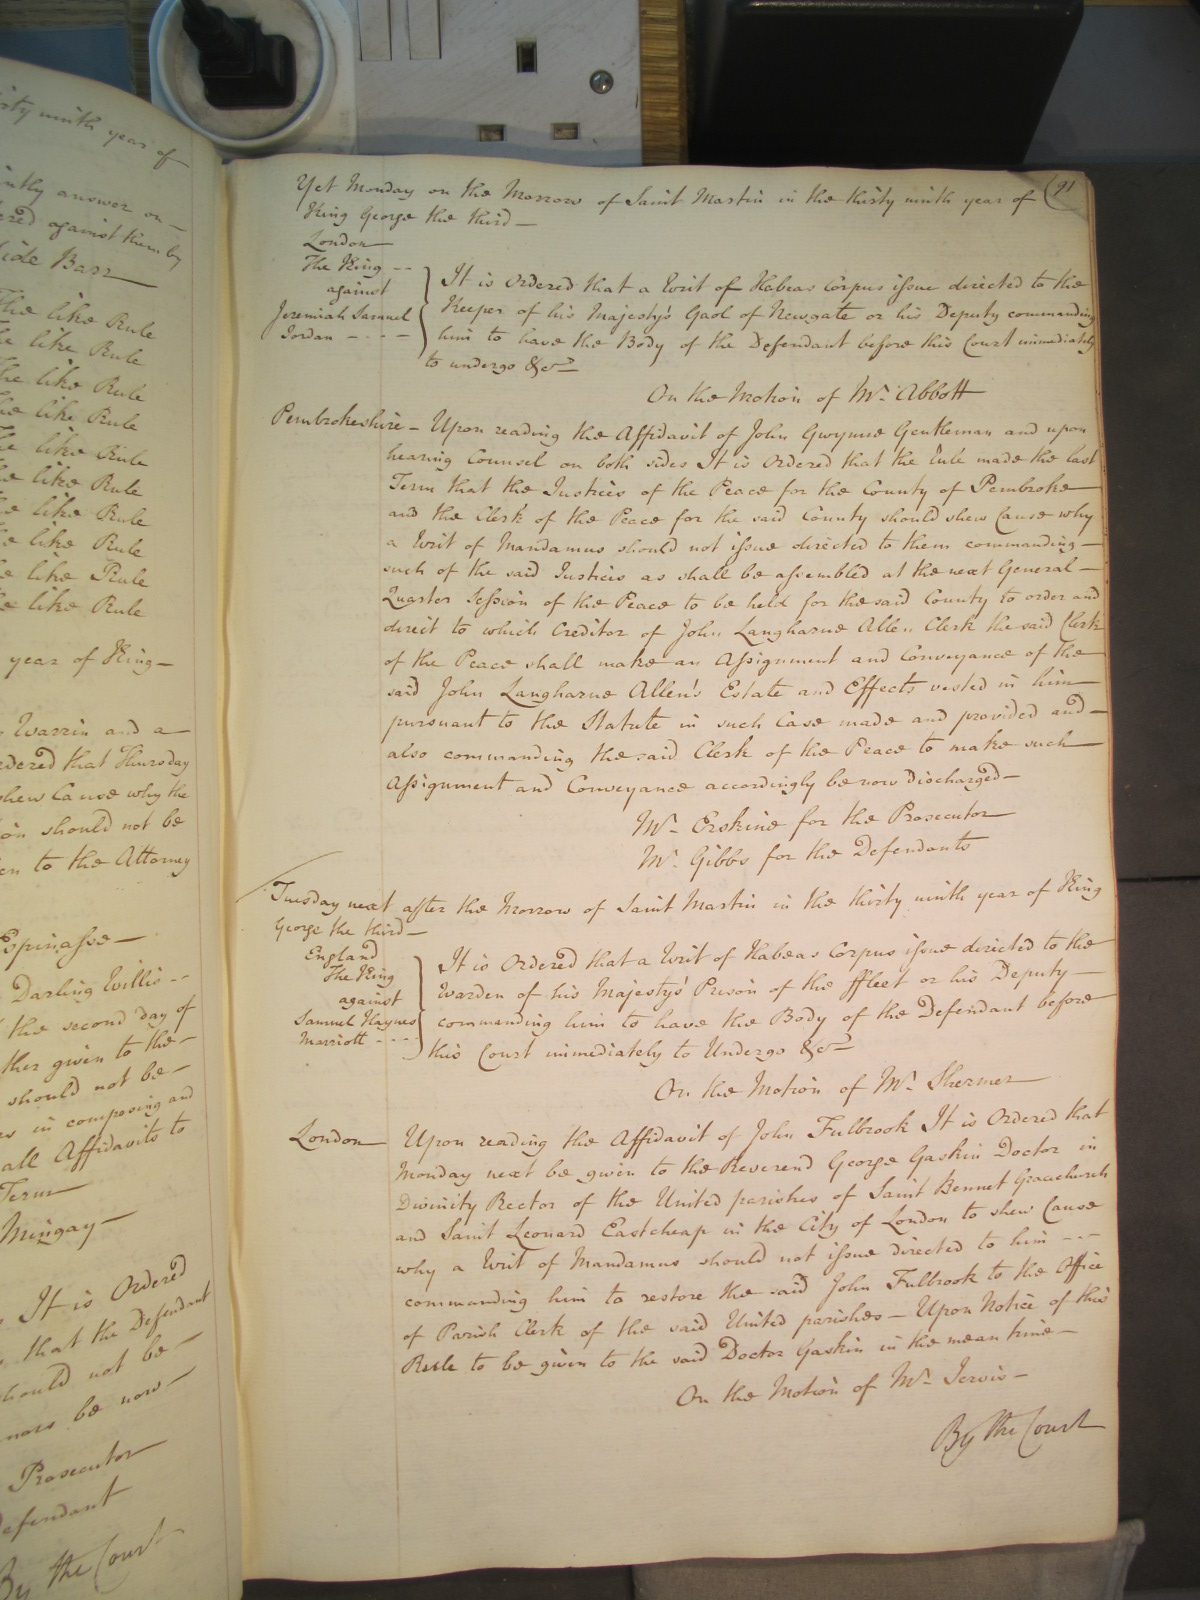 irty ninth year of
intly answer on
ered against them by
Side Barr
The like Rule
he like Rule
The like Rule
he like Rule
he like Rule
he like Rule
he like Rule
he like Rule
he like Rule
he like Rule
year of King
Warrin and a
rdered that Thursday
shew Cause why the
ion should not be
en to the Attorney
Espinasse
Darling Willis
the second day of
ther given to the
should not be
rs in composing and
all Affidavits to
Term
Mingay
It is Ordered
that the Defendant
should not be
be now
Prosecutor
Defendant
By the Court
91
Yet Monday on the Morrow of Saint Martin in the thirty ninth year of
King George the third
London
The King
against
Jeremiah Samuel
Jordan
It is Ordered that a Writ of Habeas Corpus issue directed to the
Keeper of his Majesty's Gaol of Newgate or his Deputy commanding
him to have the Body of the Defendant before this Court immediately
to undergo &c.
On the Motion of Mr. Abbott
Pembrokeshire - Upon reading the Affidavit of John Gwynne Gentleman and upon
hearing Counsel on both sides It is Ordered that the Rule made the last
Term that the Justices of the Peace for the County of Pembroke
and the Clerk of the Peace for the said County should shew Cause why
a Writ of Mandamus should not issue directed to them commanding
such of the said Justices as shall be assembled at the next General
Quarter Session of the Peace to be held for the said County to order and
direct to which Creditor of John Langharne Allen Clerk the said Clerk
of the Peace shall make an Assignment and Conveyance of the
said John Langharne Allen's Estate and Effects vested in him
pursuant to the Statute in such Case made and provided and
also commanding the said Clerk of the Peace to make such
Assignment and Conveyance accordingly be now Discharged
Mr. Erskine for the Prosecutor
Mr. Gibbs for the Defendants
Tuesday next after the Morrow of Saint Martin in the thirty ninth year of King
George the third
England
The King
against
Samuel Haynes
Marriott
It is Ordered that a Writ of Habeas Corpus issue directed to the
Warden of his Majesty's Prison of the ffleet or his Deputy
commanding him to have the Body of the Defendant before
this Court immediately to Undergo &c.
On the Motion of Mr. Shermer
London Upon reading the Affidavit of John Fulbrook It is Ordered that
Monday next be given to the Reverend George Gaskin Doctor in
Divinity Rector of the United parishes of Saint Bennet Gracechurch
and Saint Leonard Eastcheap in the City of London to shew Cause
why a Writ of Mandamus should not issue directed to him
commanding him to restore the said John Fulbrook to the Office
of Parish Clerk of the said United parishes - Upon Notice of this
Rule to be given to the said Doctor Gaskin in the mean time
On the Motion of Mr. Jervis
By the Court